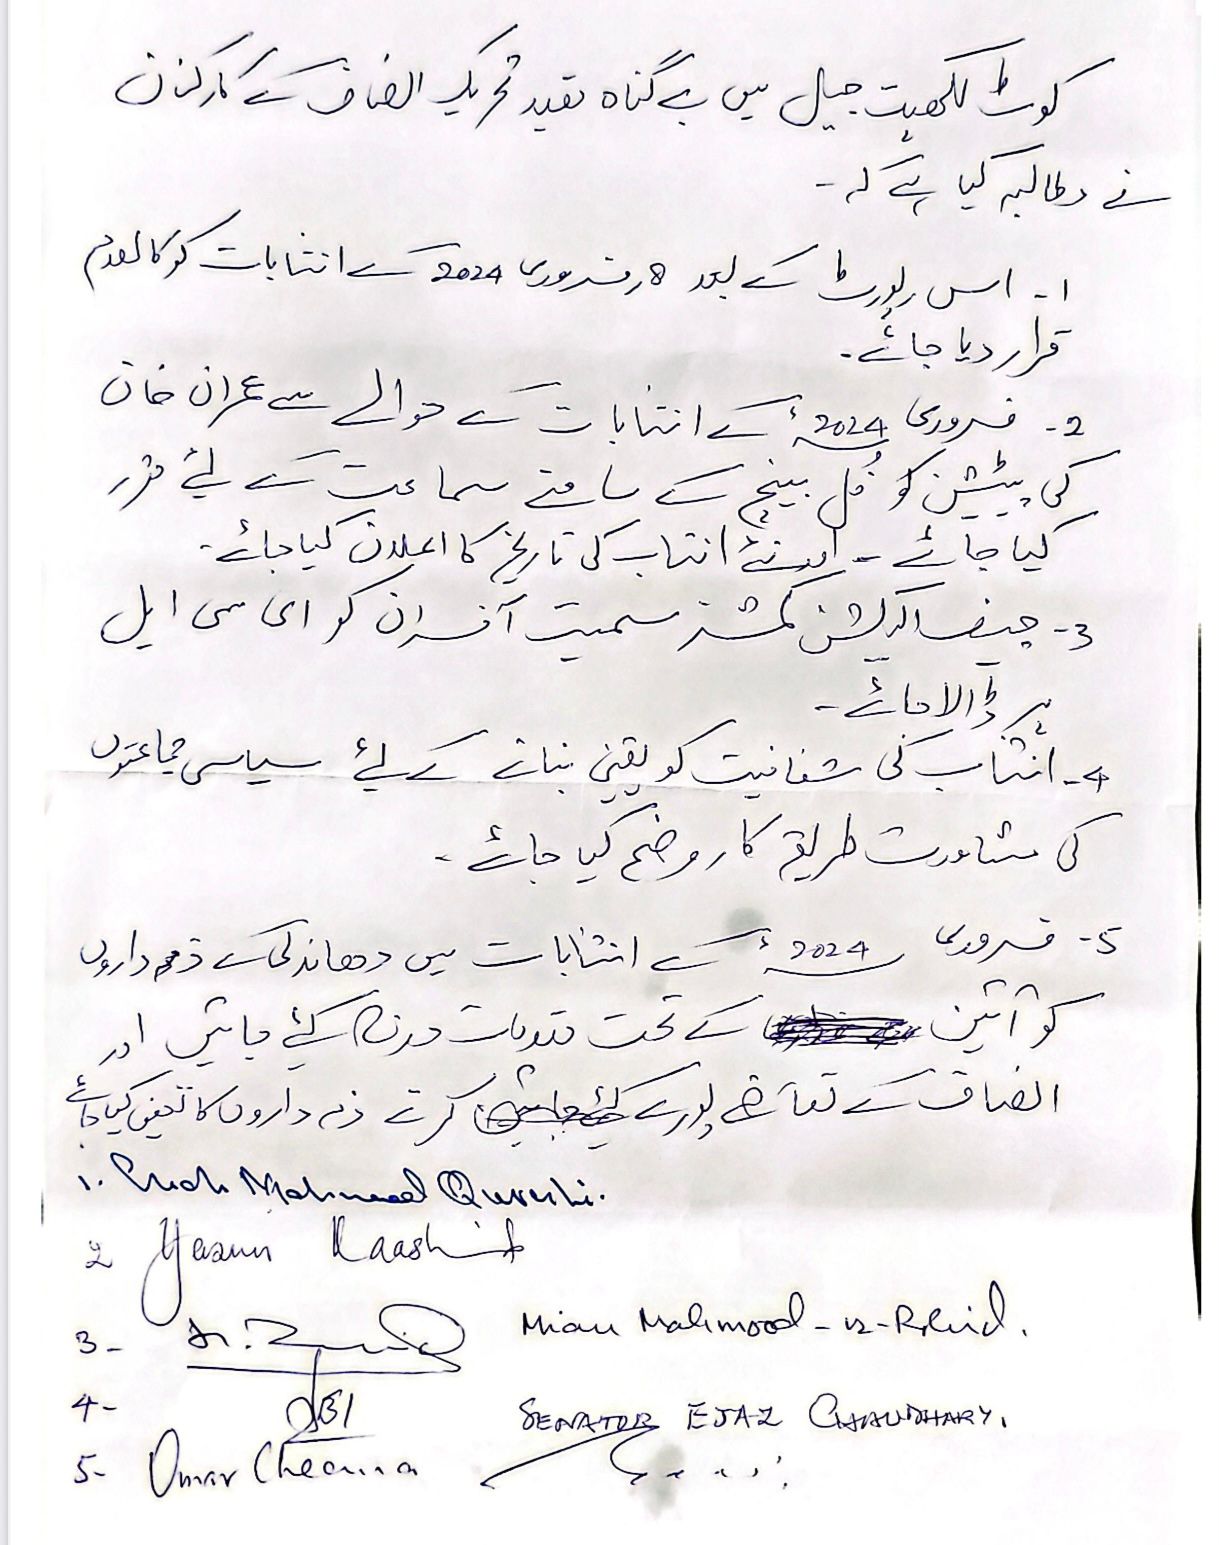 کوٹ لکھپت جیل میں بے گناہ مقید تحریک انصاف کے کارکنان
نے مطالبہ کیا ہے کہ -
1- اس رپورٹ کے بعد 8 فروری 2024 کے انتخابات کو کالعدم
قرار دیا جائے -
2- فروری 2024ء کے انتخابات کے حوالے سے عمران خان
کی پیٹیشن کو فُل بینچ کے سامنے سماعت کے لیئے مقرر
کیا جائے - اور نئے انتخاب کی تاریخ کا اعلان کیا جائے -
3- چیف الیکشن کمشنر سمیت آفسران کو ای سی ایل
پر ڈالا جائے -
4- انتخاب کی شفافیت کو یقینی بنانے کے لیئے سیاسی جماعتوں
کی مشاورت طریقہ کار وضع کیا جائے -
5- فروری 2024ء کے انتخابات میں دھاندلی کے ذمہ داروں
کو آئین کے تحت مقدمات درج کیئے جائیں اور
انصاف کے تقاضے پورے کرتے ذمہ داروں کا تعین کیا جائے
1. Shah Mahmood Qureshi.
2 Yasmin Raashid
3- Mian Mahmood-ur-Rashid.
4- SENATOR EJAZ CHAUDHARY.
5- Omar Cheema